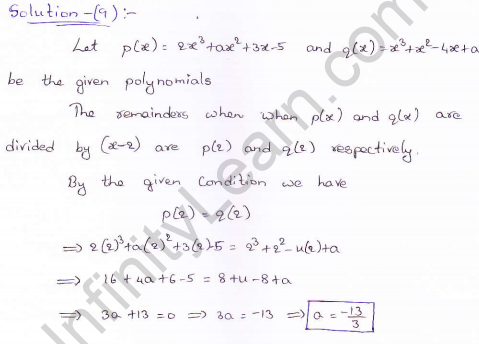 Solution-(9):-
Let p(x) = 2x³+ax²+3x-5 and q(x)=x³+x²-4x+a
be the given polynomials
The remainders when when p(x) and q(x) are
divided by (x-2) are p(2) and q(2) respectively.
By the given Condition we have
p(2) = q(2)
⟹ 2(2)³+a(2)²+3(2)-5 = 2³+2²-4(2)+a
⟹ 16+4a+6-5 = 8+4-8+a
⟹ 3a+13 = 0 ⟹ 3a = -13 ⟹ a = -13/3
InfinityLearn.com